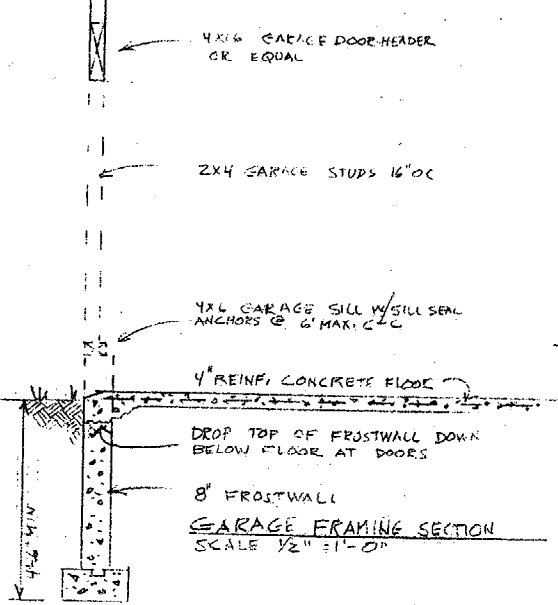 4X16 GARAGE DOOR HEADER
OR EQUAL
2X4 GARAGE STUDS 16" OC
4X6 GARAGE SILL W/SILL SEAL
ANCHORS @ 6' MAX. C-C
4" REINF. CONCRETE FLOOR
DROP TOP OF FROSTWALL DOWN
BELOW FLOOR AT DOORS
8" FROSTWALL
GARAGE FRAMING SECTION
SCALE 1/2" = 1'-0"
4'-6" MIN